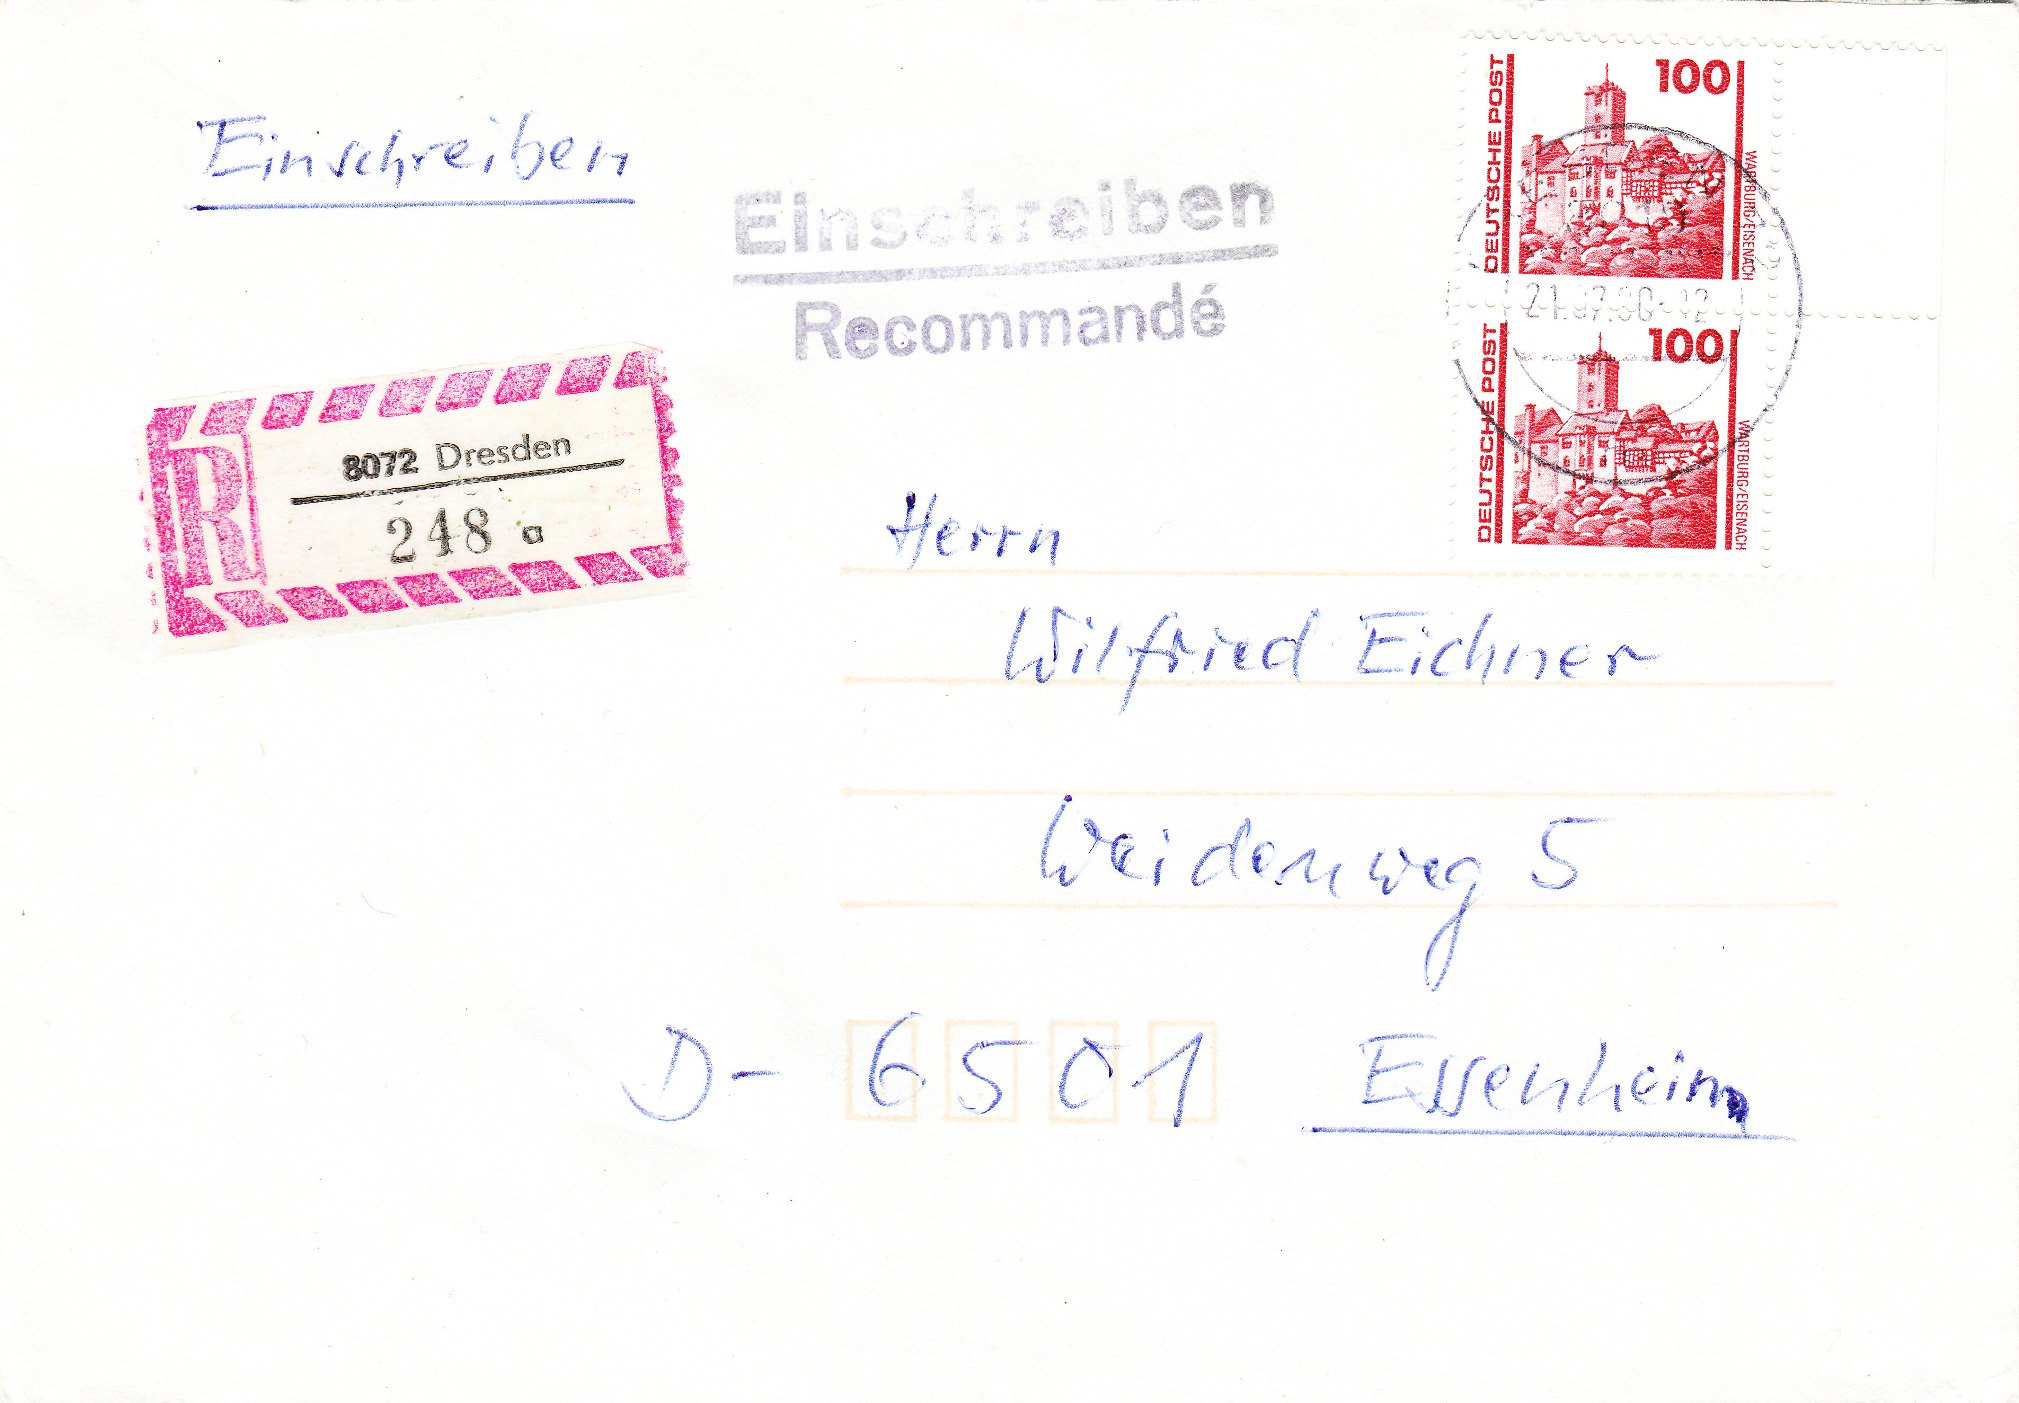 Einschreiben
Einschreiben
Recommandé
DEUTSCHE POST
100
WARTBURG/EISENACH
21.07.90-12
DEUTSCHE POST
100
WARTBURG/EISENACH
R
8072 Dresden
248 a
Herrn
Wilfried Eichner
Weidenweg 5
D- 6501 Essenheim